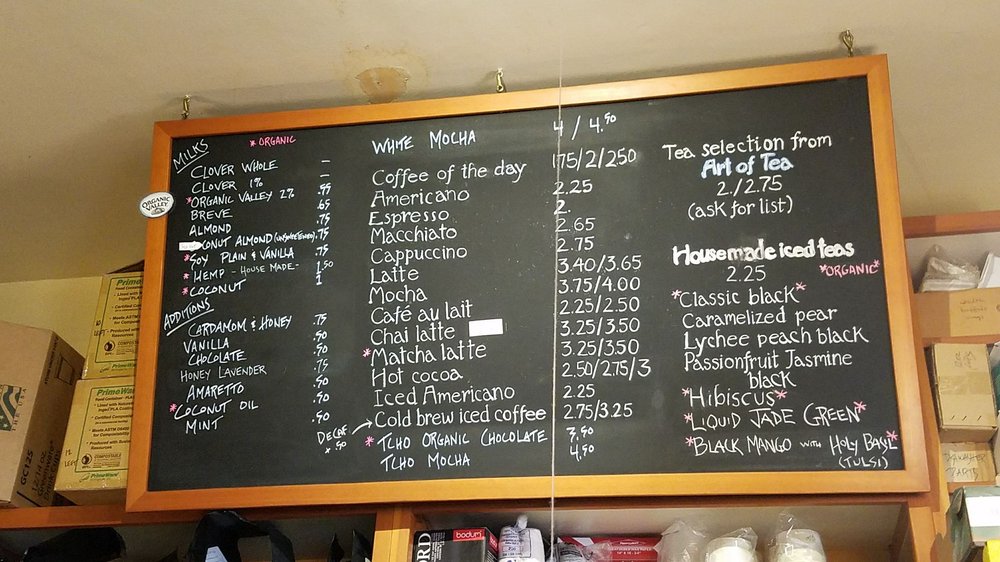 MILKS
* ORGANIC
CLOVER WHOLE —
CLOVER 1% —
*ORGANIC VALLEY 2% .55
BREVE .65
ALMOND .75
CONUT ALMOND (UNSWEETENED) .75
*SOY PLAIN & VANILLA .75
*HEMP - HOUSE MADE - 1.50
*COCONUT 1
ADDITIONS
CARDAMOM & HONEY .75
VANILLA .50
CHOCOLATE .50
HONEY LAVENDER .75
AMARETTO .50
*COCONUT OIL .50
MINT .50
DECAF
.50
WHITE MOCHA 4 / 4.50
Coffee of the day 1.75/2/2.50
Americano 2.25
Espresso 2.
Macchiato 2.65
Cappuccino 2.75
Latte 3.40/3.65
Mocha 3.75/4.00
Café au lait 2.25/2.50
Chai latte 3.25/3.50
*Matcha latte 3.25/3.50
Hot cocoa 2.50/2.75/3
Iced Americano 2.25
Cold brew iced coffee 2.75/3.25
*TCHO ORGANIC CHOCOLATE 3.50
TCHO MOCHA 4.50
Tea selection from
Art of Tea
2./2.75
(ask for list)
Housemade iced teas
2.25 *ORGANIC*
*Classic black*
Caramelized pear
Lychee peach black
Passionfruit Jasmine
black
*Hibiscus*
*LIQUID JADE GREEN*
*BLACK MANGO WITH HOLY BASIL*
(TULSI)
ORGANIC
VALLEY
PrimeWare
COMPOSTABLE
GC125
bodum